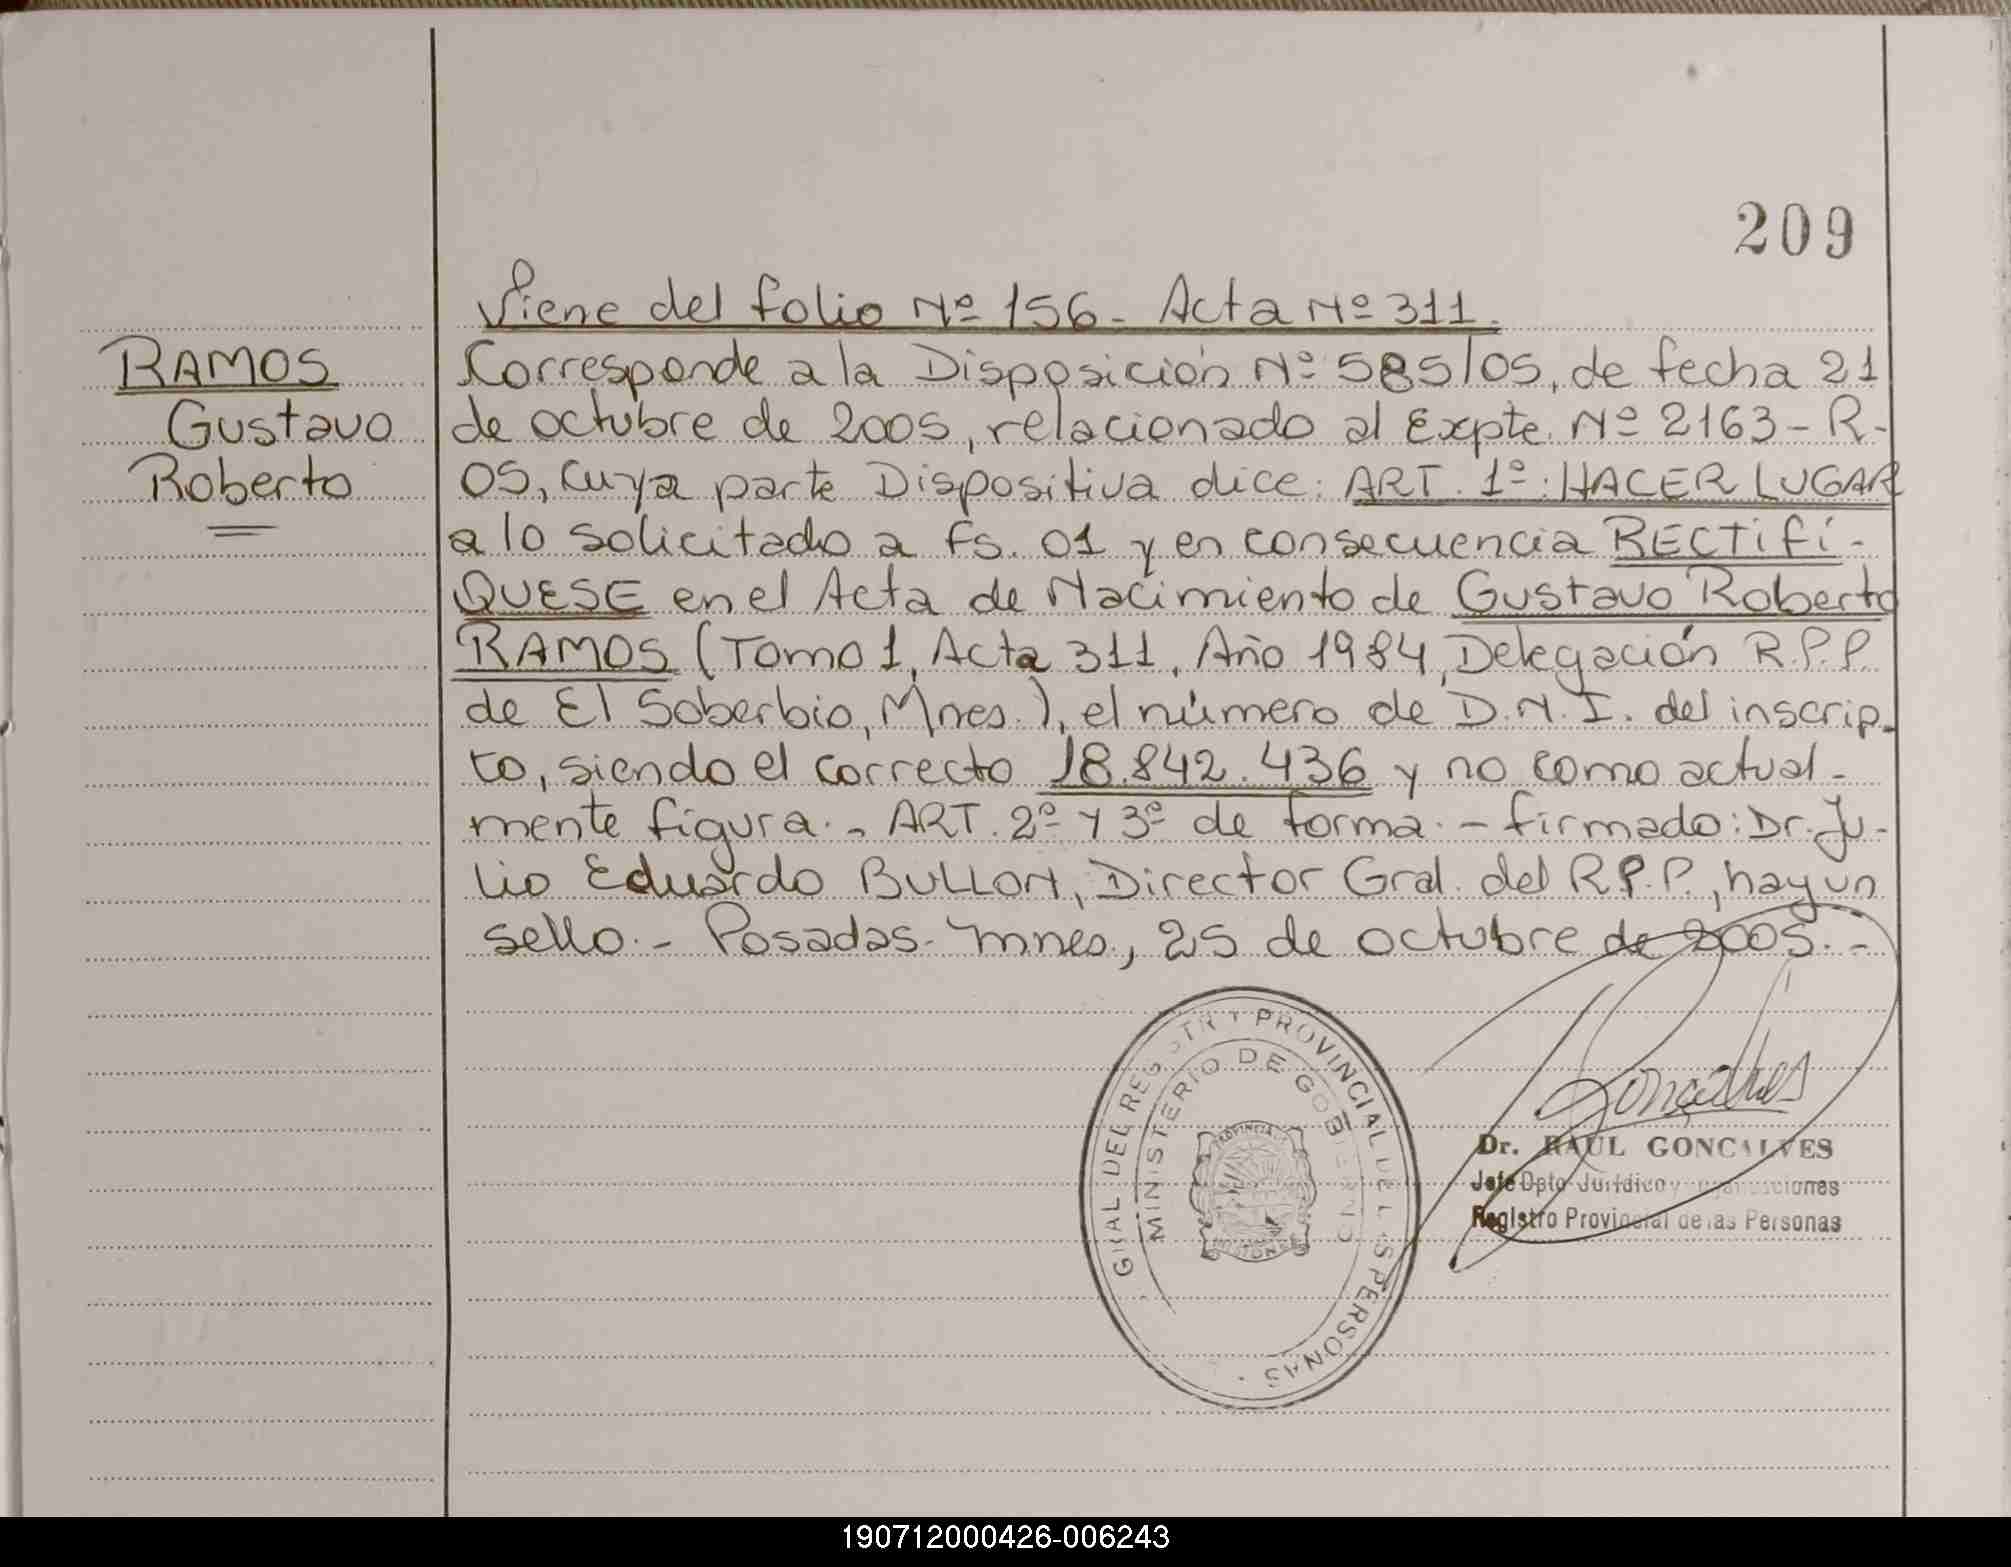 209
Viene del folio Nº 156 - Acta Nº 311.
RAMOS
Gustavo
Roberto
Corresponde a la Disposición Nº 585/05, de fecha 21
de octubre de 2005, relacionado al Expte. Nº 2163 - R -
05, cuya parte Dispositiva dice: ART. 1º: HACER LUGAR
a lo solicitado a fs. 01 y en consecuencia RECTIFÍ-
QUESE en el Acta de Nacimiento de Gustavo Roberto
RAMOS (Tomo 1, Acta 311, Año 1984, Delegación R.P.P.
de El Soberbio, Mnes.), el número de D.N.I. del inscrip-
to, siendo el correcto 18.842.436 y no como actual-
mente figura.- ART. 2º y 3º de forma.- firmado: Dr. Ju-
lio Eduardo BULLON, Director Gral. del R.P.P., hay un
sello.- Posadas - Mnes., 25 de octubre de 2005.-
GRAL DEL REGISTRO PROVINCIAL DE LAS PERSONAS
MINISTERIO DE GOBIERNO
PROVINCIA
MISIONES
Dr. RAUL GONCALVES
Jefe Dpto Jurídico y
Registro Provincial de las Personas
190712000426-006243